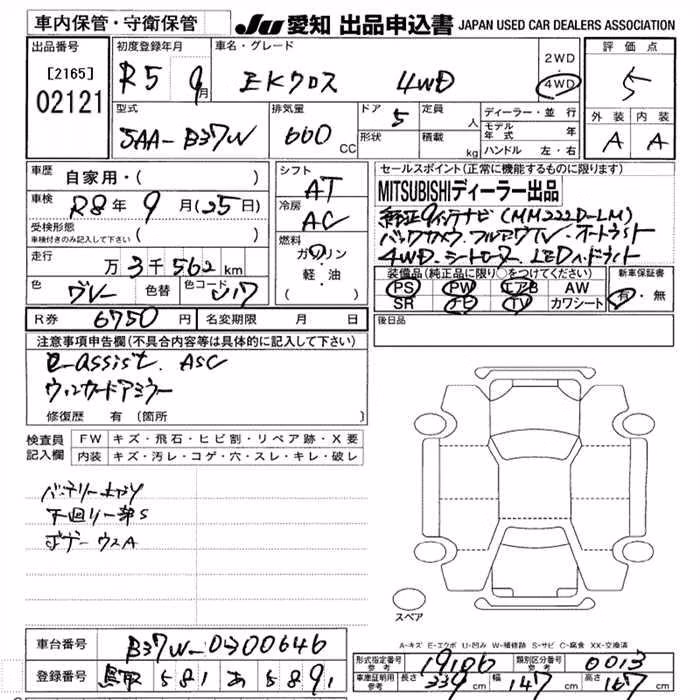 車内保管・守衛保管
JU 愛知 出品申込書 JAPAN USED CAR DEALERS ASSOCIATION
出品番号
[2165]
02121
初度登録年月
R5 9月
車名・グレード
EKクロス 4WD
2WD
4WD
評価点
5
外装 内装
A A
型式
5AA-B37W
排気量
660 CC
ドア 5
形状
定員 人
積載 kg
ディーラー・並行
モデル年式 年
ハンドル 左・右
車歴 自家用・( )
車検 R8年 9月(25日)
受検形態
車検付きのみ記入して下さい ( )
走行 万3千562km
色 グレー 色替 色コード U17
シフト AT
冷房 AC
燃料 ガソリン
軽・油
( )
R券 6750円 名変期限 月 日
セールスポイント(正常に機能するものに限ります)
MITSUBISHIディーラー出品
純正9インチナビ(MM222D-LM)
バックカメラ.フルセグTV.オートライト
4WD.シートヒーター.LEDヘッドライト
装備品(純正品に限り○をつけてください) 新車保証書
PS PW エアB AW 有・無
SR ナビ TV カワシート
後日品
注意事項申告欄(不具合内容等は具体的に記入して下さい)
e-assist. ASC
ウィンカードアミラー
修復歴 有(箇所 )
検査員記入欄
FW キズ・飛石・ヒビ割・リペア跡・X要
内装 キズ・汚レ・コゲ・穴・スレ・キレ・破レ
下廻り一部S
ボデーウスA
スペア
A-キズ E-エクボ U-凹み W-補修跡 S-サビ C-腐食 XX-交換済
車台番号 B37W-0300646
登録番号 鳥取 581 あ 5891
形式指定番号 参考 19106 類別区分番号 参考 0013
車庫証明用 参考 長さ 339cm 幅 147cm 高さ 167cm